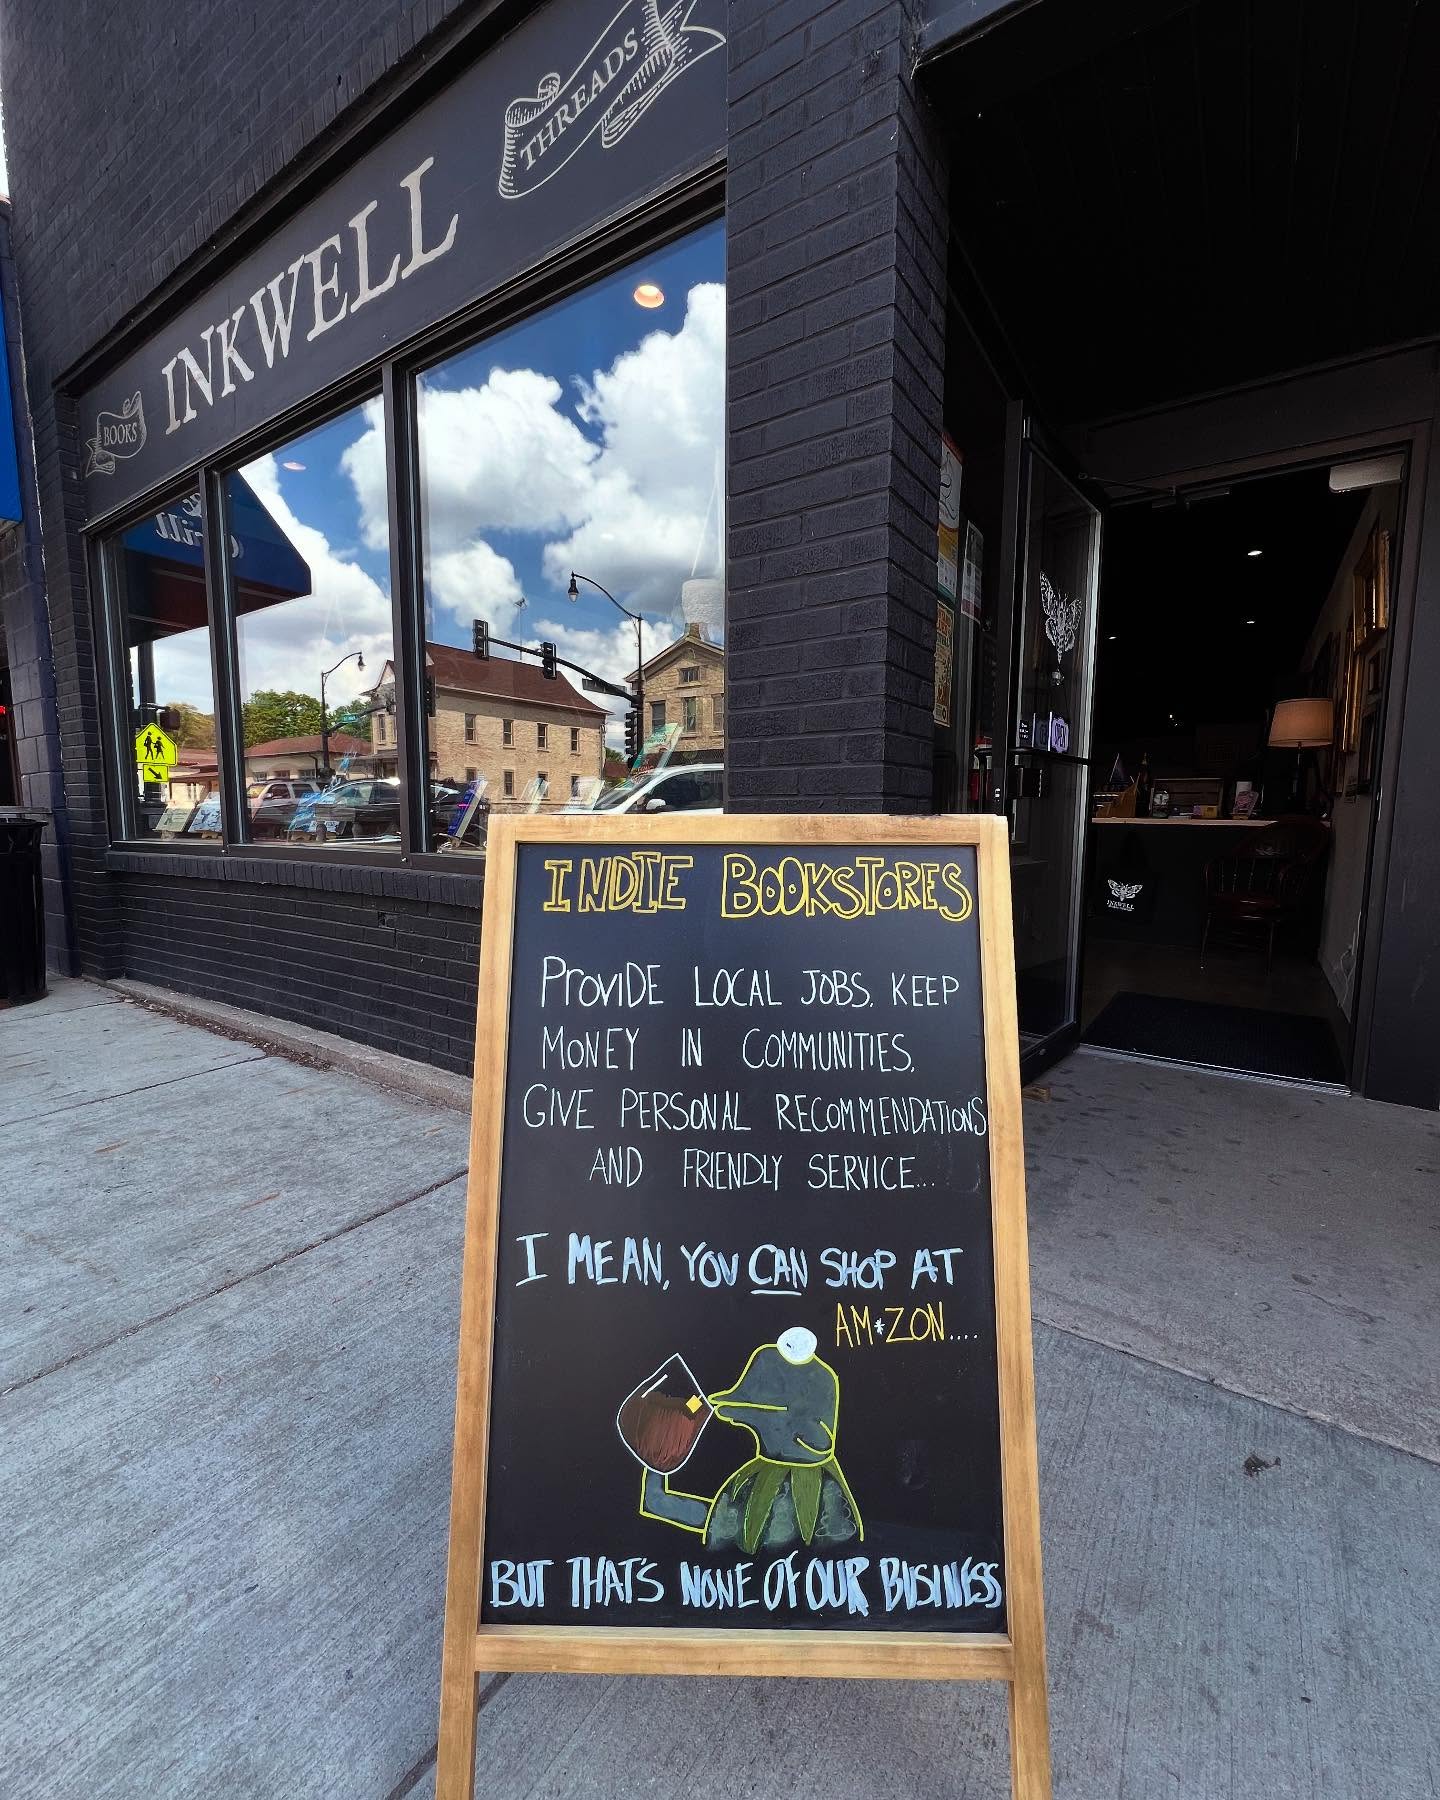 THREADS
INKWELL
BOOKS
INDIE BOOKSTORES
PROVIDE LOCAL JOBS, KEEP
MONEY IN COMMUNITIES,
GIVE PERSONAL RECOMMENDATIONS
AND FRIENDLY SERVICE...
I MEAN, YOU CAN SHOP AT
AM*ZON....
BUT THAT'S NONE OF OUR BUSINESS
INKWELL